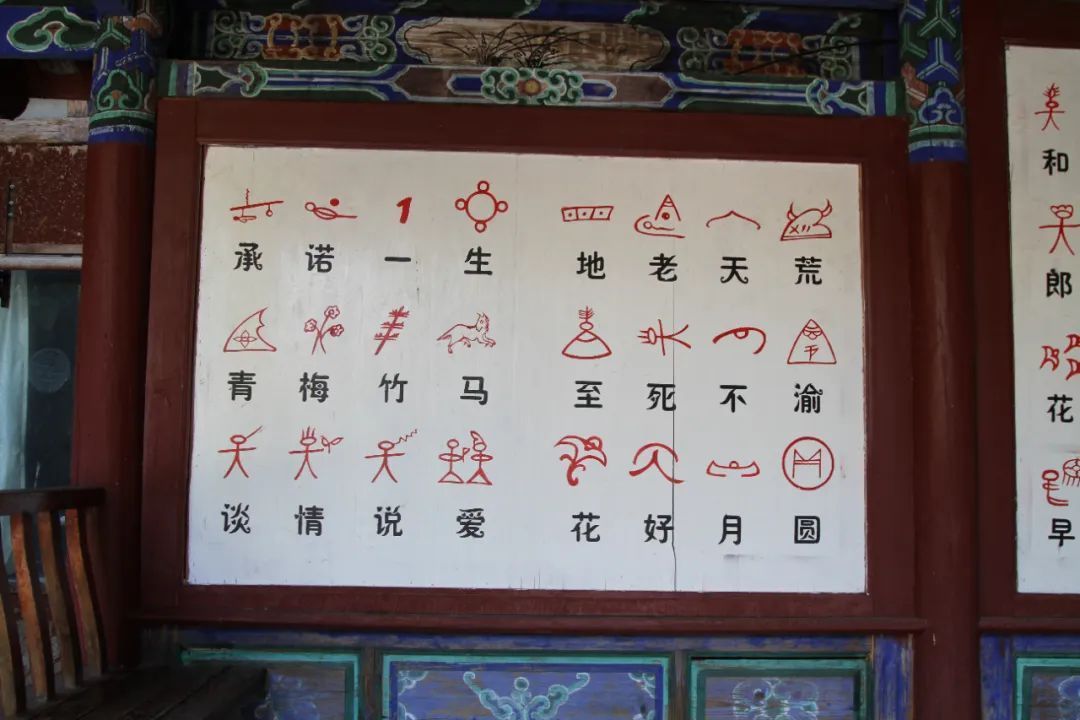 承诺一生 地老天荒
青梅竹马 至死不渝
谈情说爱 花好月圆
和
郎
花
早